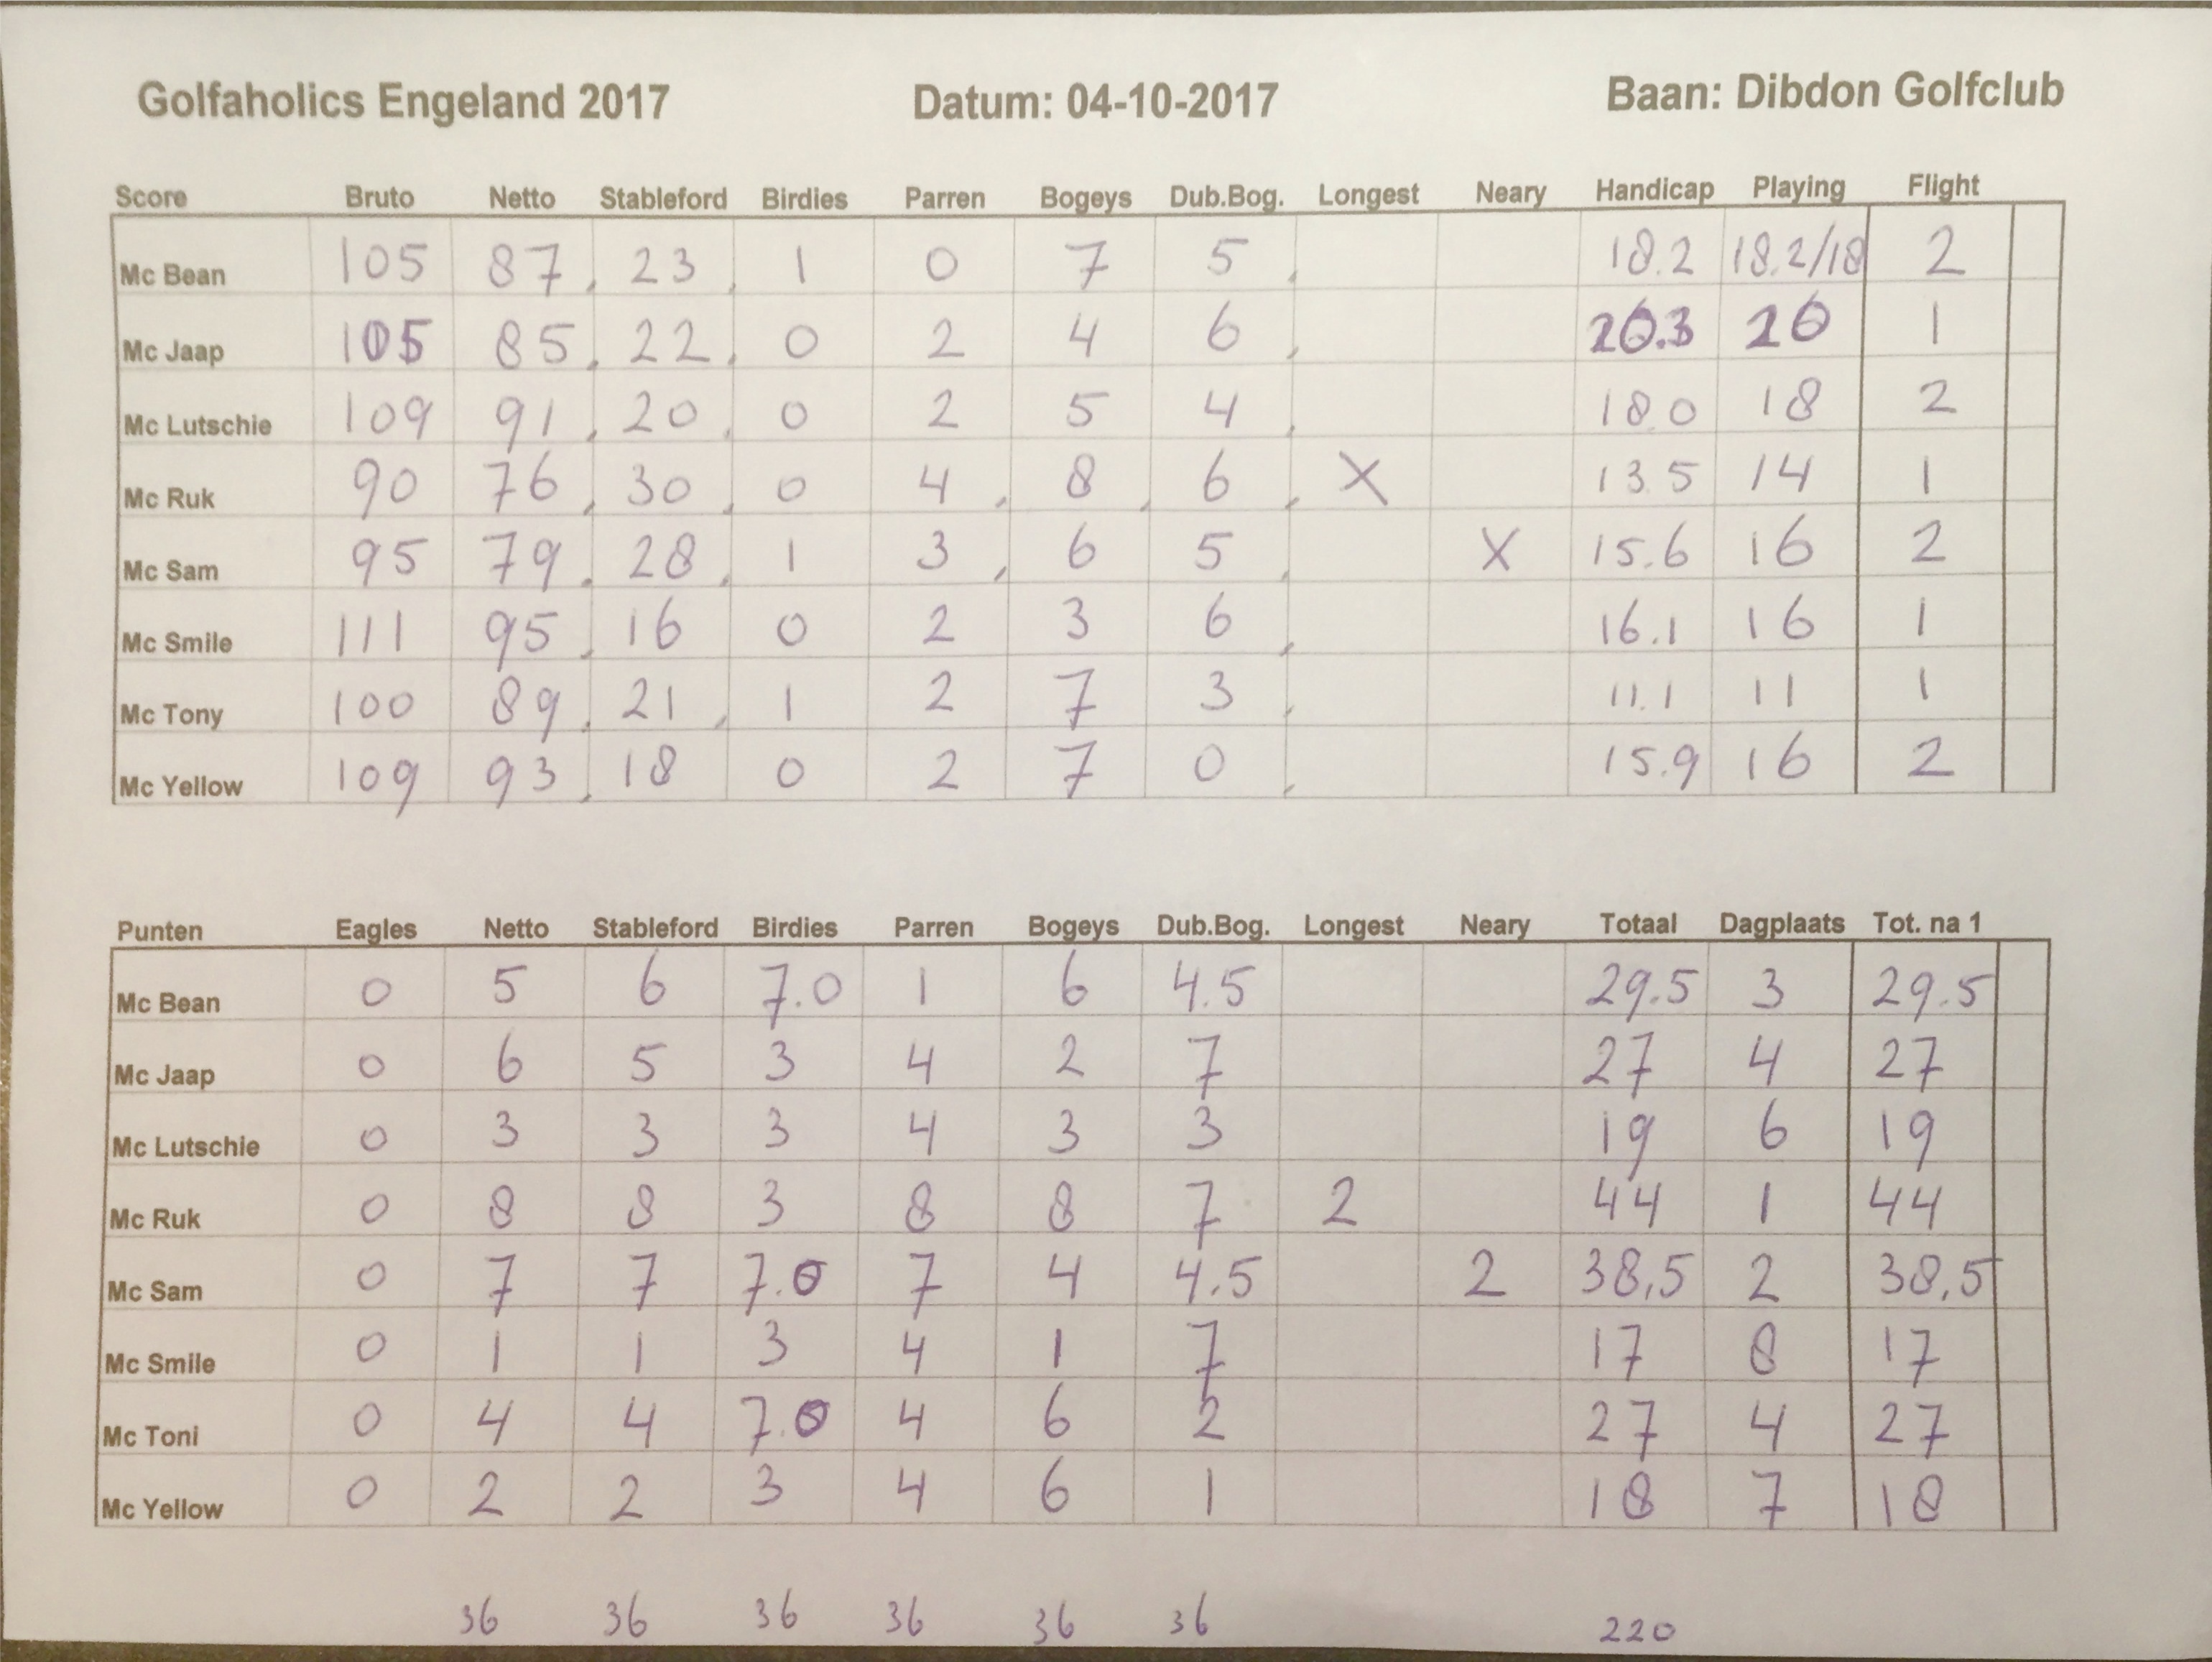 Golfaholics Engeland 2017 Datum: 04-10-2017 Baan: Dibdon Golfclub
Score Bruto Netto Stableford Birdies Parren Bogeys Dub.Bog. Longest Neary Handicap Playing Flight
Mc Bean 105 87 23 1 0 7 5 18.2 18.2/18 2
Mc Jaap 105 85 22 0 2 4 6 20.3 20 1
Mc Lutschie 109 91 20 0 2 5 4 18.0 18 2
Mc Ruk 90 76 30 0 4 8 6 X 13.5 14 1
Mc Sam 95 79 28 1 3 6 5 X 15.6 16 2
Mc Smile 111 95 16 0 2 3 6 16.1 16 1
Mc Tony 100 89 21 1 2 7 3 11.1 11 1
Mc Yellow 109 93 18 0 2 7 0 15.9 16 2
Punten Eagles Netto Stableford Birdies Parren Bogeys Dub.Bog. Longest Neary Totaal Dagplaats Tot. na 1
Mc Bean 0 5 6 7.0 1 6 4.5 29.5 3 29.5
Mc Jaap 0 6 5 3 4 2 7 27 4 27
Mc Lutschie 0 3 3 3 4 3 3 19 6 19
Mc Ruk 0 8 8 3 8 8 7 2 44 1 44
Mc Sam 0 7 7 7.0 7 4 4.5 2 38,5 2 38,5
Mc Smile 0 1 1 3 4 1 7 17 8 17
Mc Toni 0 4 4 7.0 4 6 2 27 4 27
Mc Yellow 0 2 2 3 4 6 1 18 7 18
36 36 36 36 36 36 220